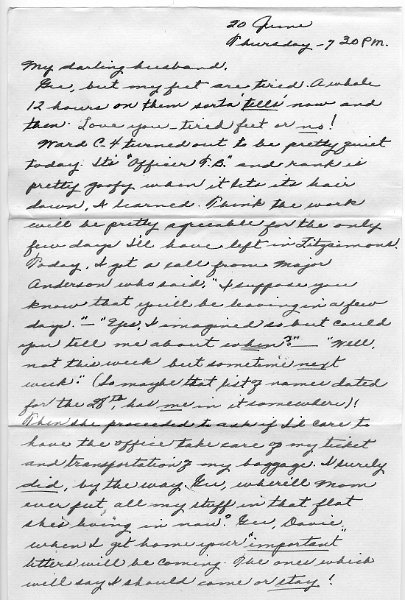 20 June
Thursday - 7 30 P.M.
My darling husband,
Gee, but my feet are tired. A whole
12 hours on them sorta' tells now and
then. Love you - tired feet or no!
Ward C. 4 turned out to be pretty quiet
today. It's "Officer T.B." and rank is
pretty goofy when it lets its hair
down, I learned. Think the work
will be pretty agreeable for the only
few days I'll have left in Fitzsimons.
Today, I got a call from Major
Anderson who said, "I suppose you
know that you'll be leaving in a few
days." - "Yes, I imagined so but could
you tell me about when?" - "Well,
not this week but sometime next
week." (So maybe that list of names dated
for the 28th, has me in it somewhere)!
Then she proceeded to ask if I'd care to
have the office take care of my ticket
and transportation of my baggage. I surely
did, by the way. Gee, where'll Mom
ever put all my stuff in that flat
she's living in now? Gee, Davie,
when I get home your "important"
letters will be coming. The ones which
will say I should come or stay!